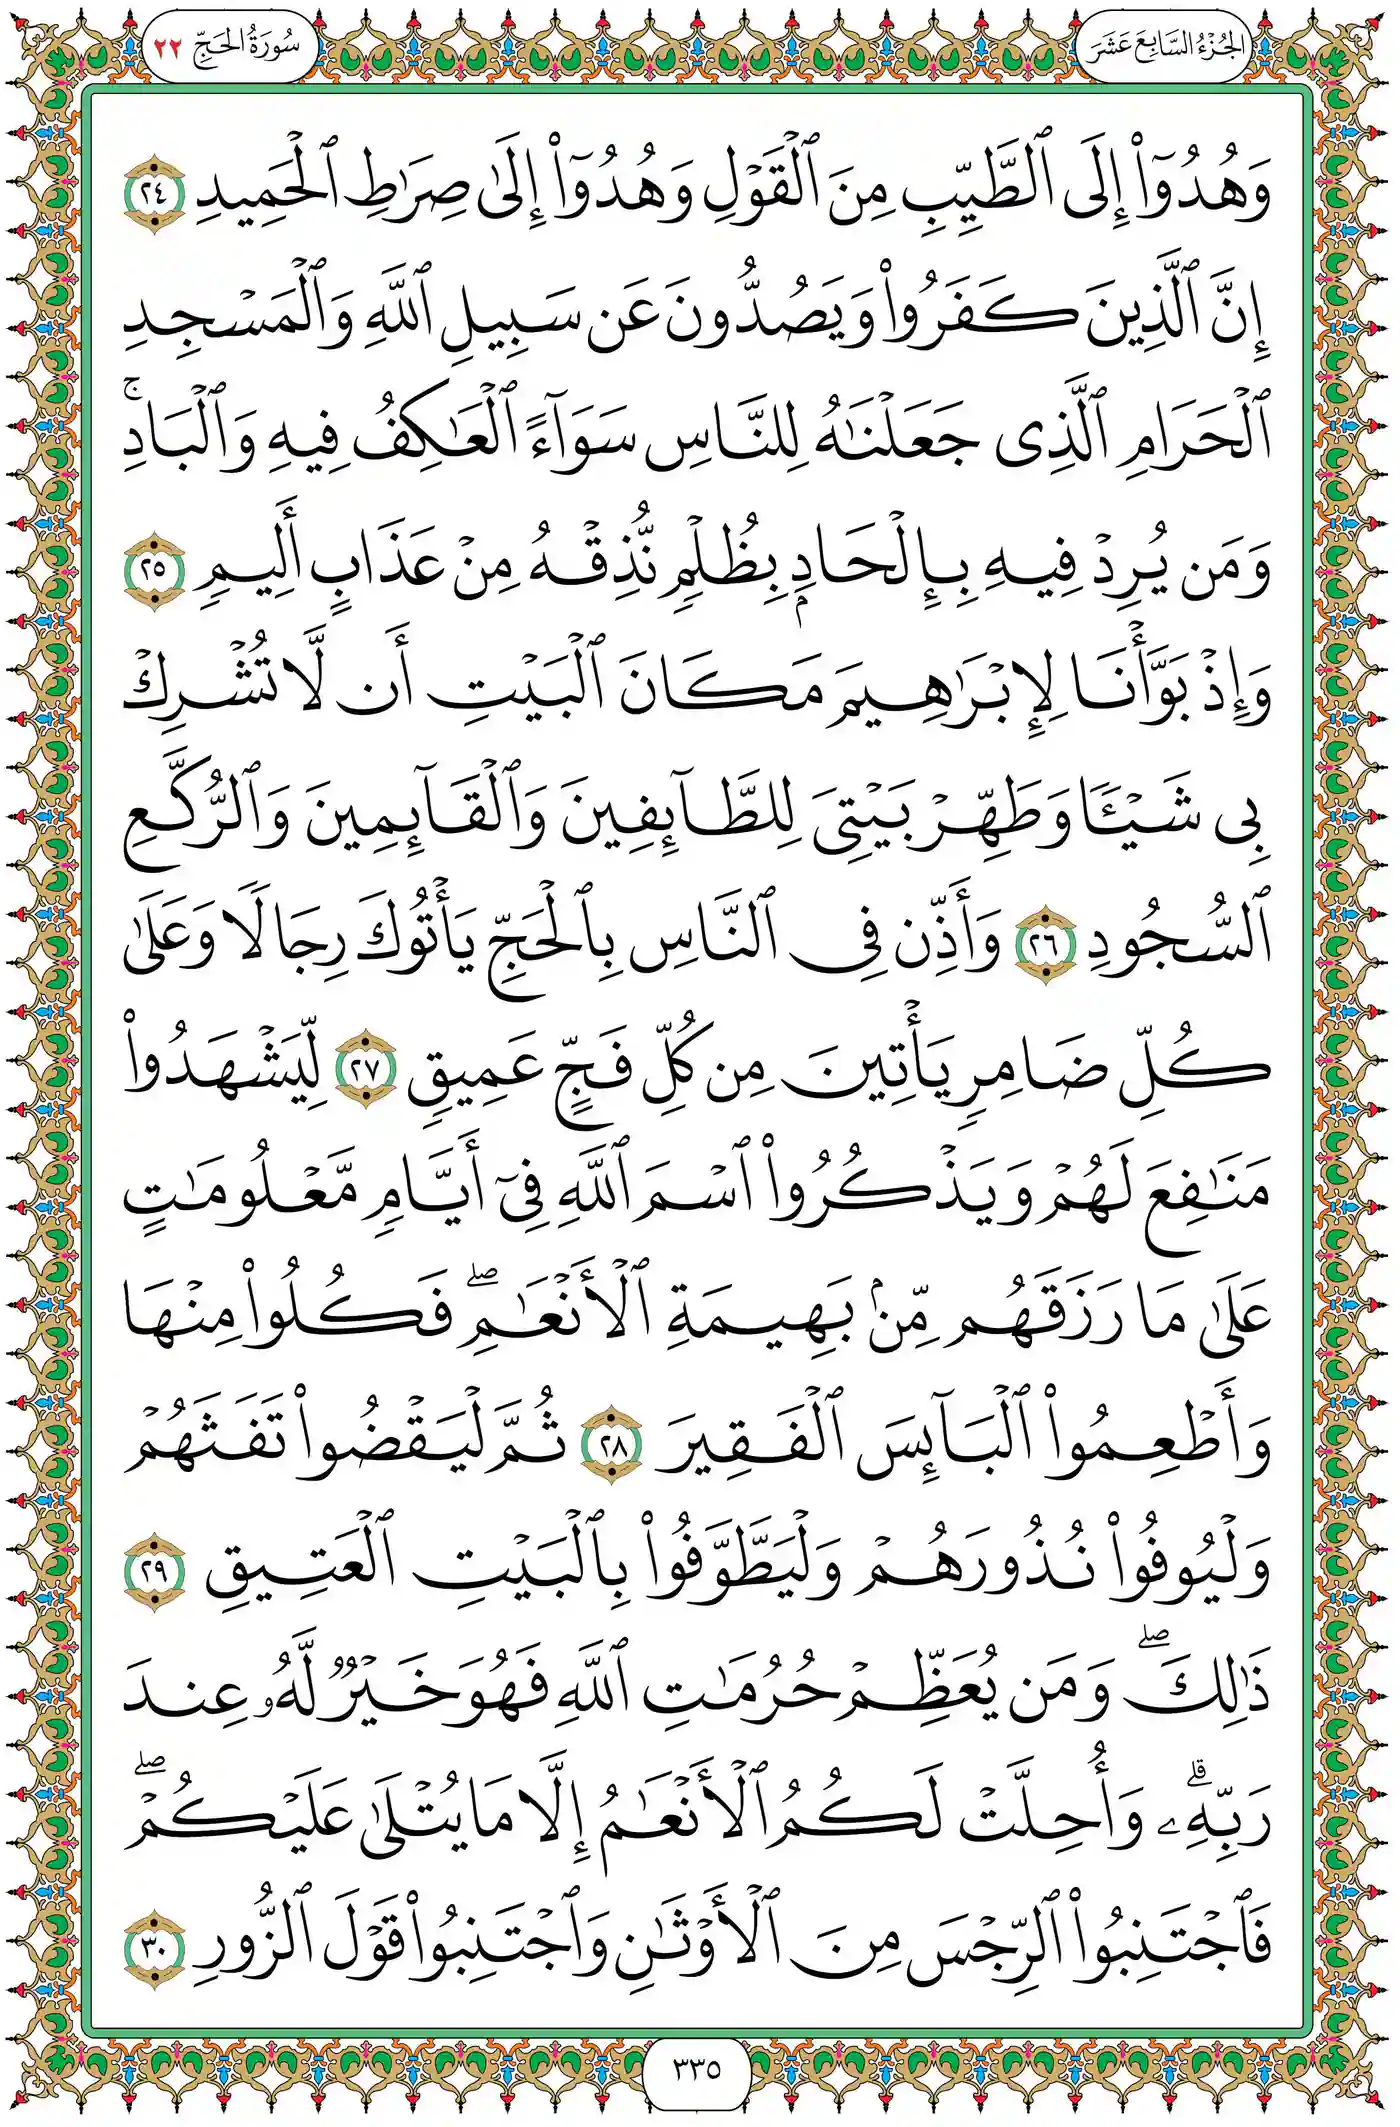 الجُزْءُ السَّابِعَ عَشَرَ
سُورَةُ الحَجِّ ٢٢
وَهُدُوٓا۟ إِلَى ٱلطَّيِّبِ مِنَ ٱلْقَوْلِ وَهُدُوٓا۟ إِلَىٰ صِرَٰطِ ٱلْحَمِيدِ ٢٤
إِنَّ ٱلَّذِينَ كَفَرُوا۟ وَيَصُدُّونَ عَن سَبِيلِ ٱللَّهِ وَٱلْمَسْجِدِ
ٱلْحَرَامِ ٱلَّذِى جَعَلْنَٰهُ لِلنَّاسِ سَوَآءً ٱلْعَٰكِفُ فِيهِ وَٱلْبَادِ ۚ
وَمَن يُرِدْ فِيهِ بِإِلْحَادٍۭ بِظُلْمٍ نُّذِقْهُ مِنْ عَذَابٍ أَلِيمٍ ٢٥
وَإِذْ بَوَّأْنَا لِإِبْرَٰهِيمَ مَكَانَ ٱلْبَيْتِ أَن لَّا تُشْرِكْ
بِى شَيْـًٔا وَطَهِّرْ بَيْتِىَ لِلطَّآئِفِينَ وَٱلْقَآئِمِينَ وَٱلرُّكَّعِ
ٱلسُّجُودِ ٢٦ وَأَذِّن فِى ٱلنَّاسِ بِٱلْحَجِّ يَأْتُوكَ رِجَالًا وَعَلَىٰ
كُلِّ ضَامِرٍ يَأْتِينَ مِن كُلِّ فَجٍّ عَمِيقٍ ٢٧ لِّيَشْهَدُوا۟
مَنَٰفِعَ لَهُمْ وَيَذْكُرُوا۟ ٱسْمَ ٱللَّهِ فِىٓ أَيَّامٍ مَّعْلُومَٰتٍ
عَلَىٰ مَا رَزَقَهُم مِّنۢ بَهِيمَةِ ٱلْأَنْعَٰمِ ۖ فَكُلُوا۟ مِنْهَا
وَأَطْعِمُوا۟ ٱلْبَآئِسَ ٱلْفَقِيرَ ٢٨ ثُمَّ لْيَقْضُوا۟ تَفَثَهُمْ
وَلْيُوفُوا۟ نُذُورَهُمْ وَلْيَطَّوَّفُوا۟ بِٱلْبَيْتِ ٱلْعَتِيقِ ٢٩
ذَٰلِكَ ۖ وَمَن يُعَظِّمْ حُرُمَٰتِ ٱللَّهِ فَهُوَ خَيْرٌ لَّهُۥ عِندَ
رَبِّهِۦ ۗ وَأُحِلَّتْ لَكُمُ ٱلْأَنْعَٰمُ إِلَّا مَا يُتْلَىٰ عَلَيْكُمْ ۖ
فَٱجْتَنِبُوا۟ ٱلرِّجْسَ مِنَ ٱلْأَوْثَٰنِ وَٱجْتَنِبُوا۟ قَوْلَ ٱلزُّورِ ٣٠
٣٣٥